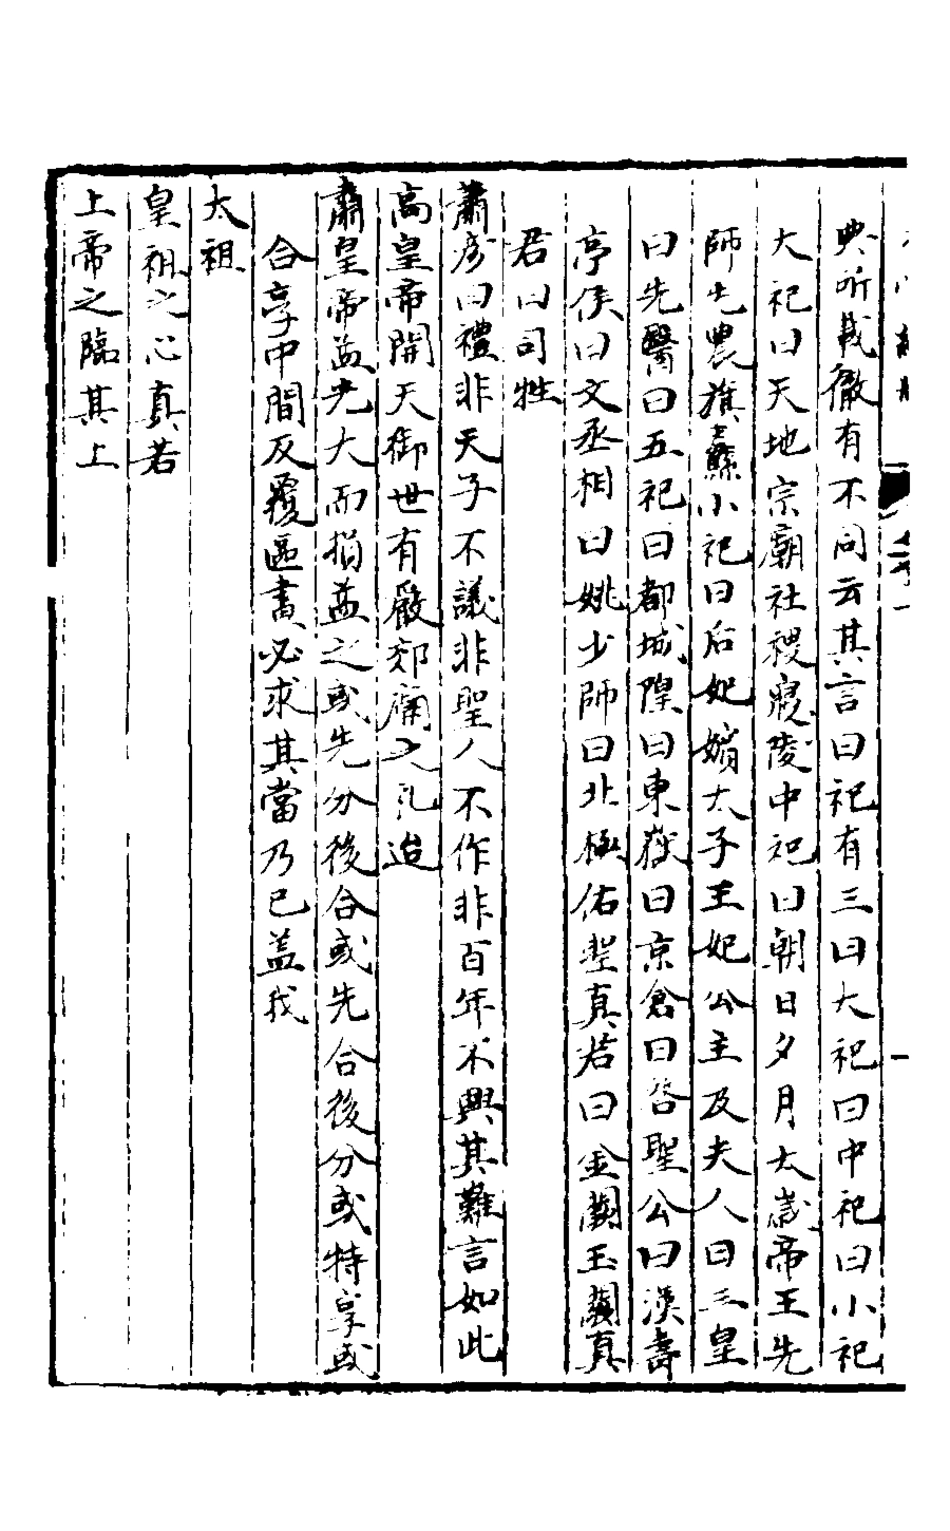 典所載徵有不同云其言曰祀有三曰大祀曰中祀曰小祀
大祀曰天地宗廟社稷寢陵中祀曰朝日夕月太歲帝王先
師先農旗纛小祀曰后妃嬪太子王妃公主及夫人曰三皇
曰先醫曰五祀曰都城隍曰東嶽曰京倉曰啓聖公曰漢壽
亭侯曰文丞相曰姚少師曰北極佑聖真君曰金闕玉闕真
君曰司牲
蕭彥曰禮非天子不議非聖人不作非百年不興其難言如此
高皇帝開天御世有嚴郊廟之礼迨
肅皇帝益光大而損益之或先分後合或先合後分或特享或
合享中間反覆區畫必求其當乃已蓋我
太祖
皇祖之心真若
上帝之臨其上